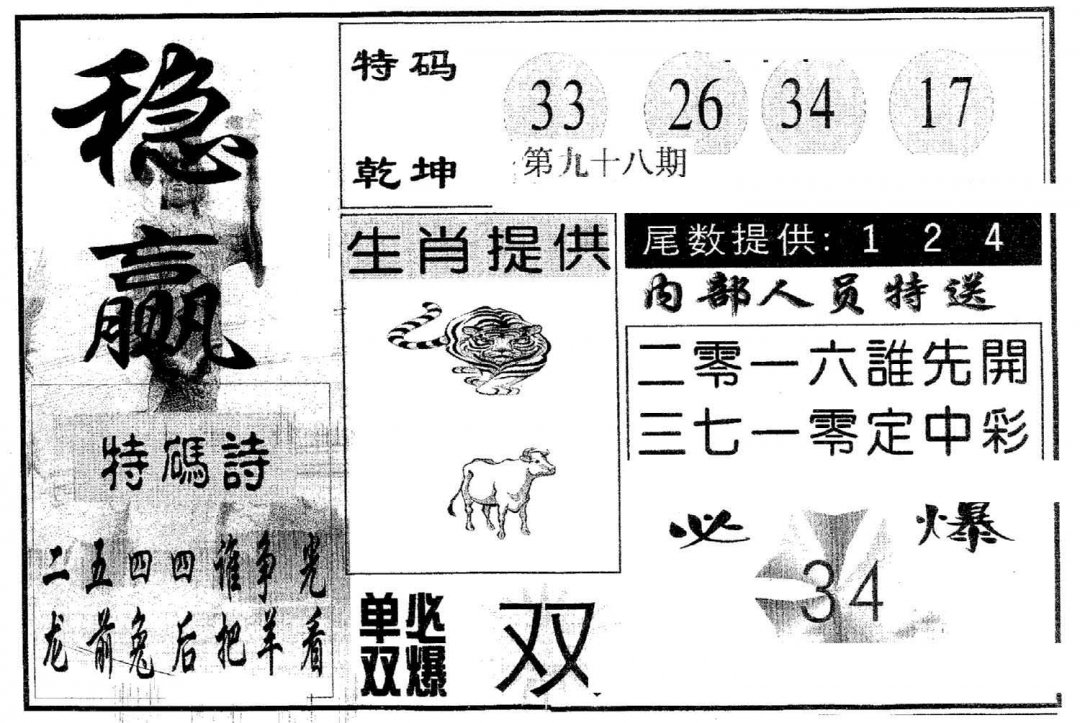 稳赢
特碼詩
二五四四谁争宪
龙前兔后把羊看
特码
乾坤
33 26 34 17
第九十八期
生肖提供
单双必爆
双
尾数提供: 1 2 4
内部人员特送
二零一六誰先開
三七一零定中彩
必爆
34